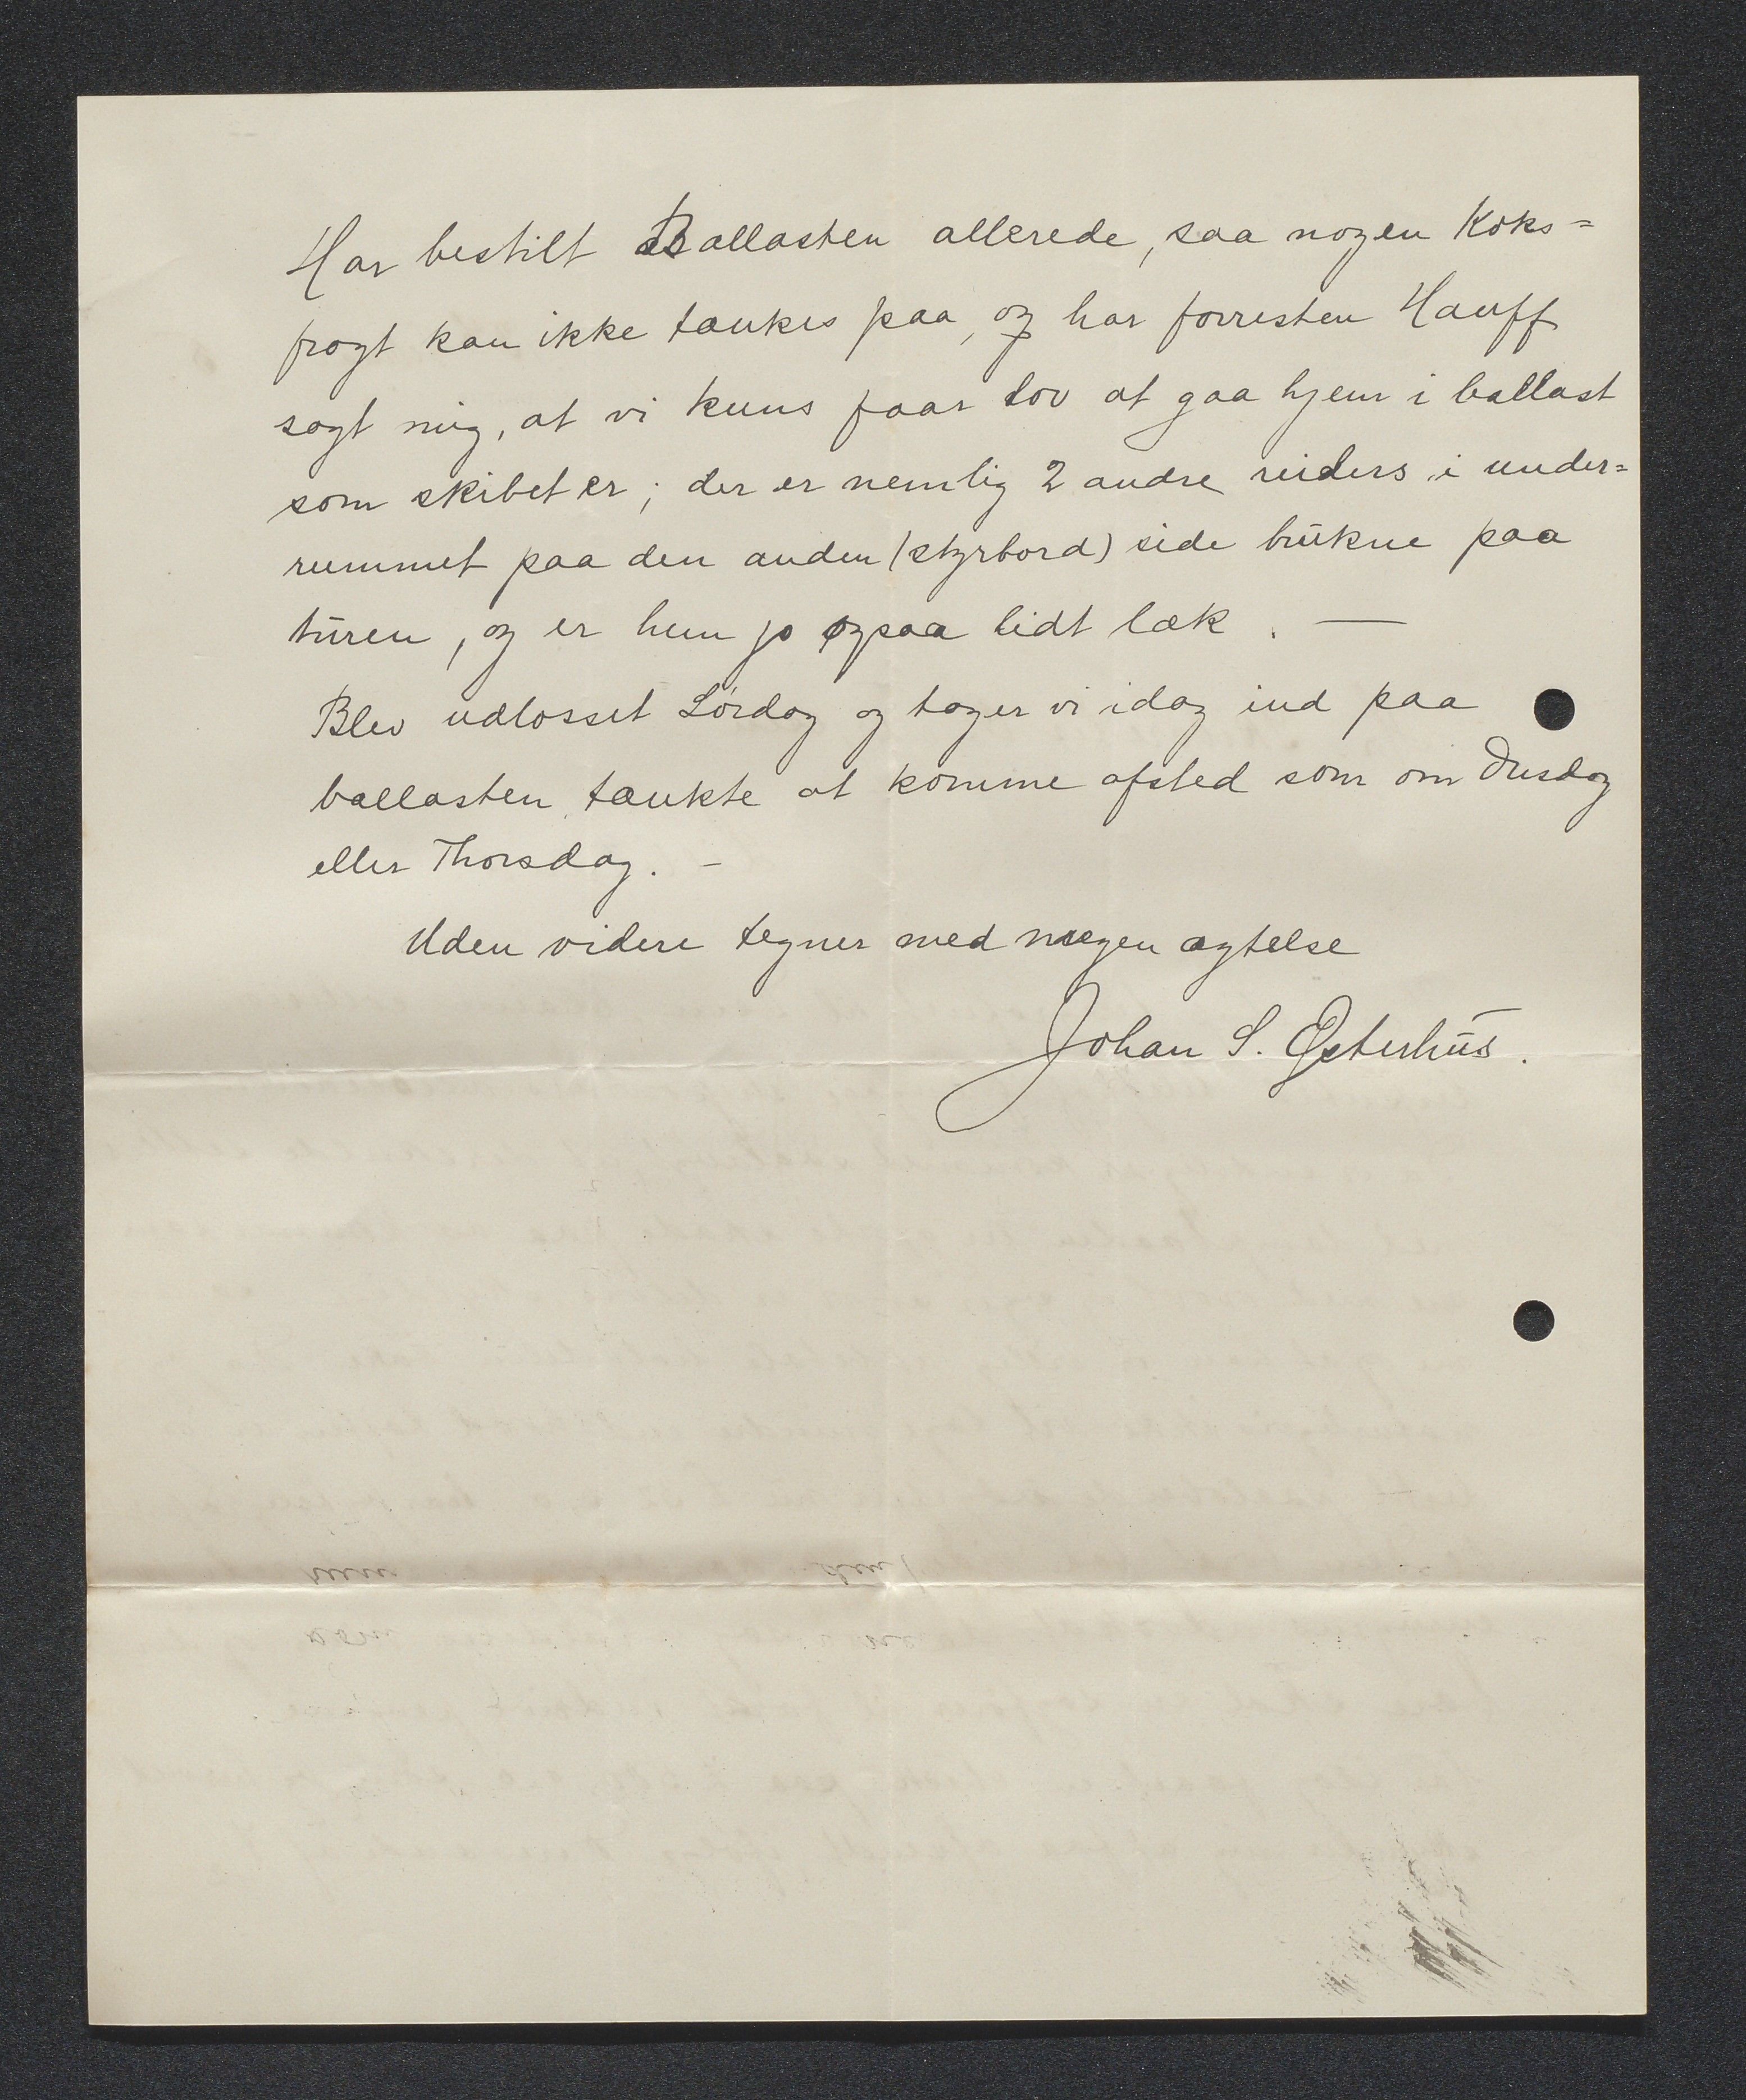 Har bestilt Ballasten allerede, saa nogen Koks=
fragt kan ikke tænkes paa, og har forresten Hauff
sagt mig, at vi kuns faar lov at gaa hjem i ballast
som skibet er; der er nemlig 2 andre reiders i under=
rummet paa den anden (styrbord) side brukne paa
turen, og er hun jo ogsaa lidt læk. —
Blev udlosset Lördag og tager vi idag ind paa
ballasten, tænkte at komme afsted som om Onsdag
eller Thorsdag. -
Uden videre tegner med megen agtelse
Johan S. Østerhus.